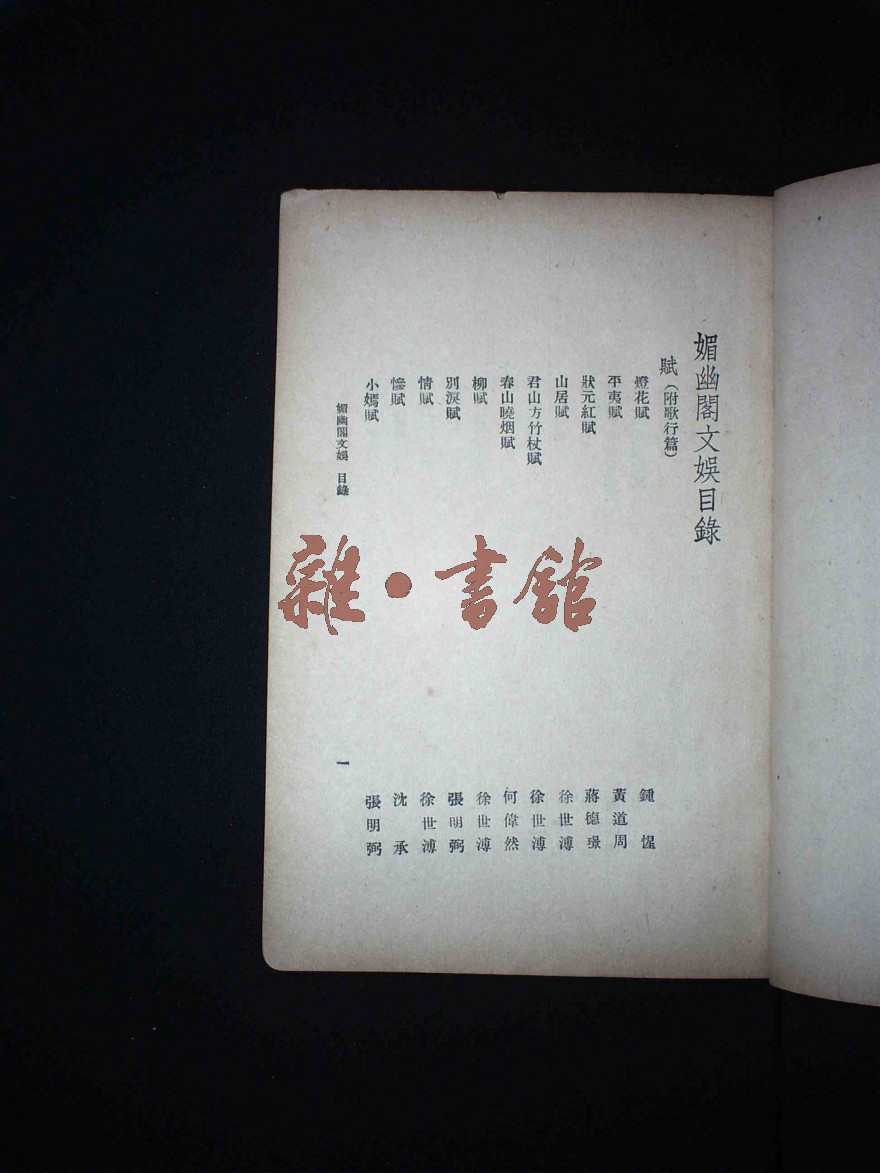 媚幽閣文娛目錄
賦（附歌行篇）
燈花賦 鍾惺
平夷賦 黃道周
狀元紅賦 蔣德璟
山居賦 徐世溥
君山方竹杖賦 徐世溥
春山曉烟賦 何偉然
柳賦 徐世溥
別淚賦 張明弼
情賦 徐世溥
慘賦 沈承
小嫣賦 張明弼
媚幽閣文娛 目錄
一
雜·書館